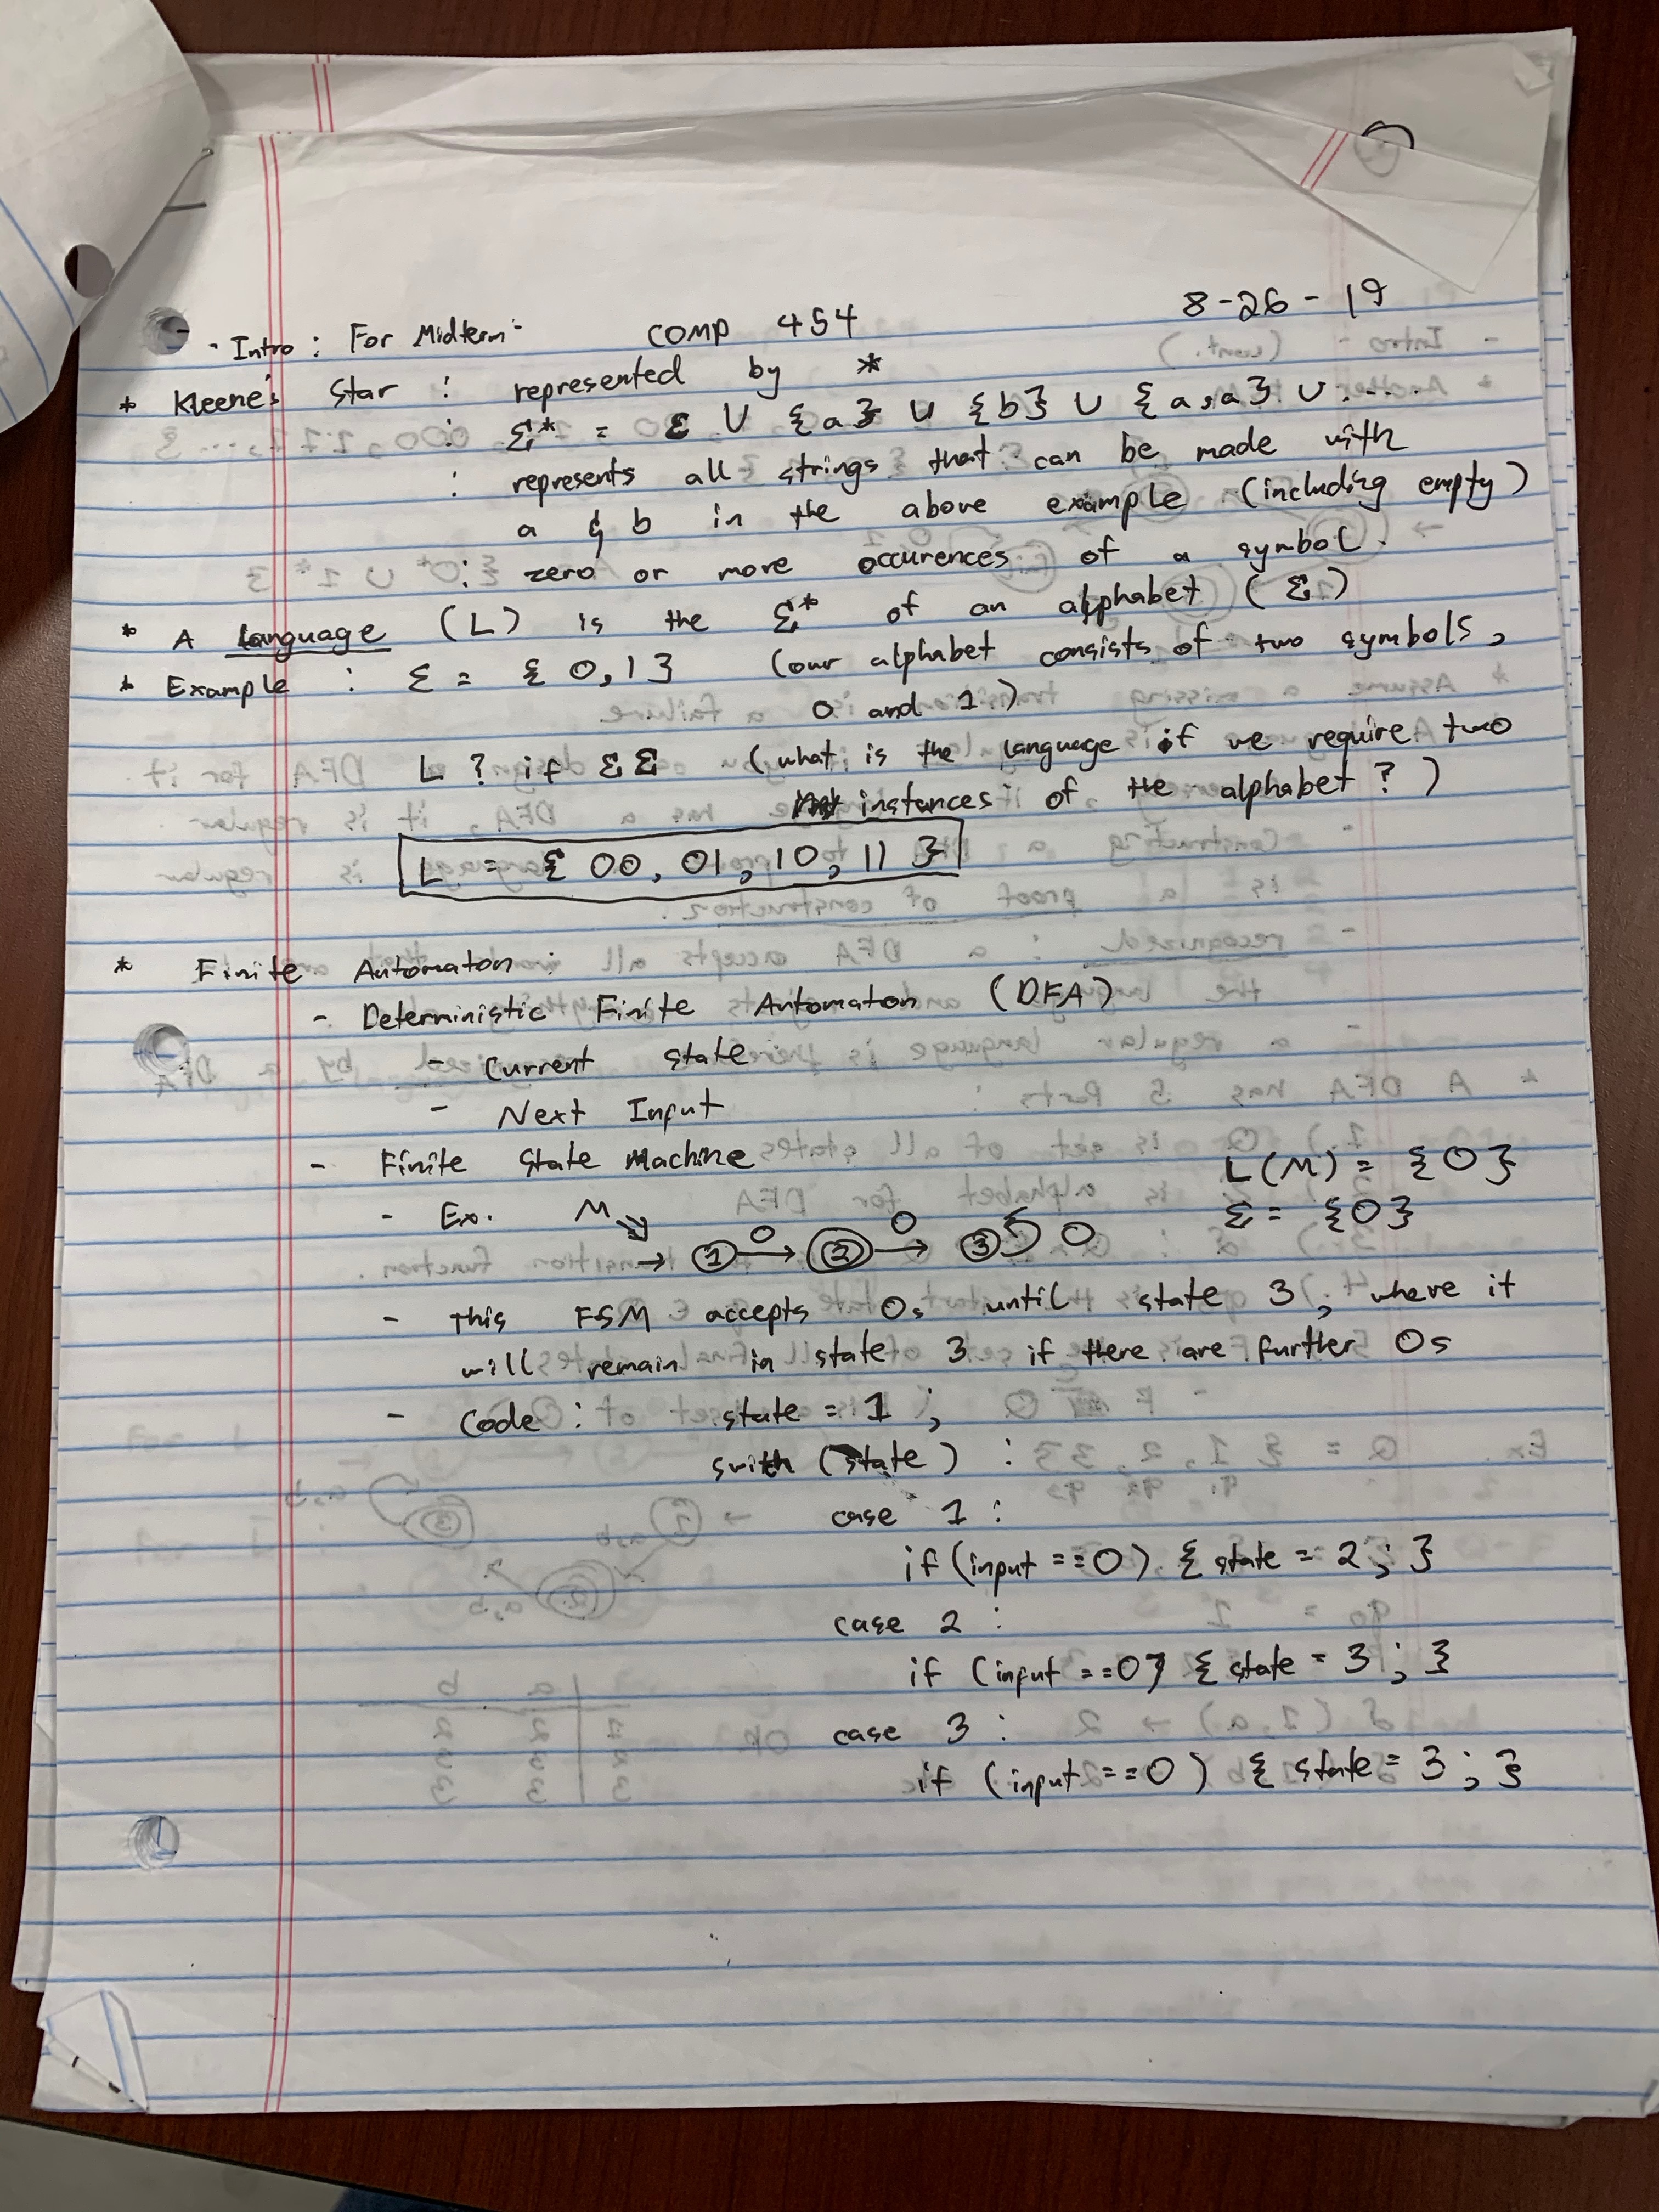 - Intro: For Midterm - COMP 454 8-26-19
* Kleene's Star : represented by *
: Σ* = ε ∪ {a} ∪ {b} ∪ {a,a} ∪ ....
: represents all strings that can be made with
a & b in the above example (including empty)
: zero or more occurences of a symbol.
* A language (L) is the Σ* of an alphabet (Σ)
* Example : Σ = {0,1} (our alphabet consists of two symbols,
0 and 1)
L ? if ΣΣ (what is the language if we require two
instances of the alphabet?)
L = {00, 01, 10, 11}
* Finite Automaton :
- Deterministic Finite Automaton (DFA)
- Current state
- Next Input
- Finite State Machine L(M) = {0}
- Ex. M Σ = {0}
→ 1 0 → 2 0 → 3 0
- This FSM accepts 0s until state 3, where it
will remain in state 3 if there are further 0s
- Code : state = 1 ;
swith (state) :
case 1 :
if (input == 0) { state = 2 ; }
case 2 :
if (input == 0) { state = 3 ; }
case 3 :
if (input == 0) { state = 3 ; }